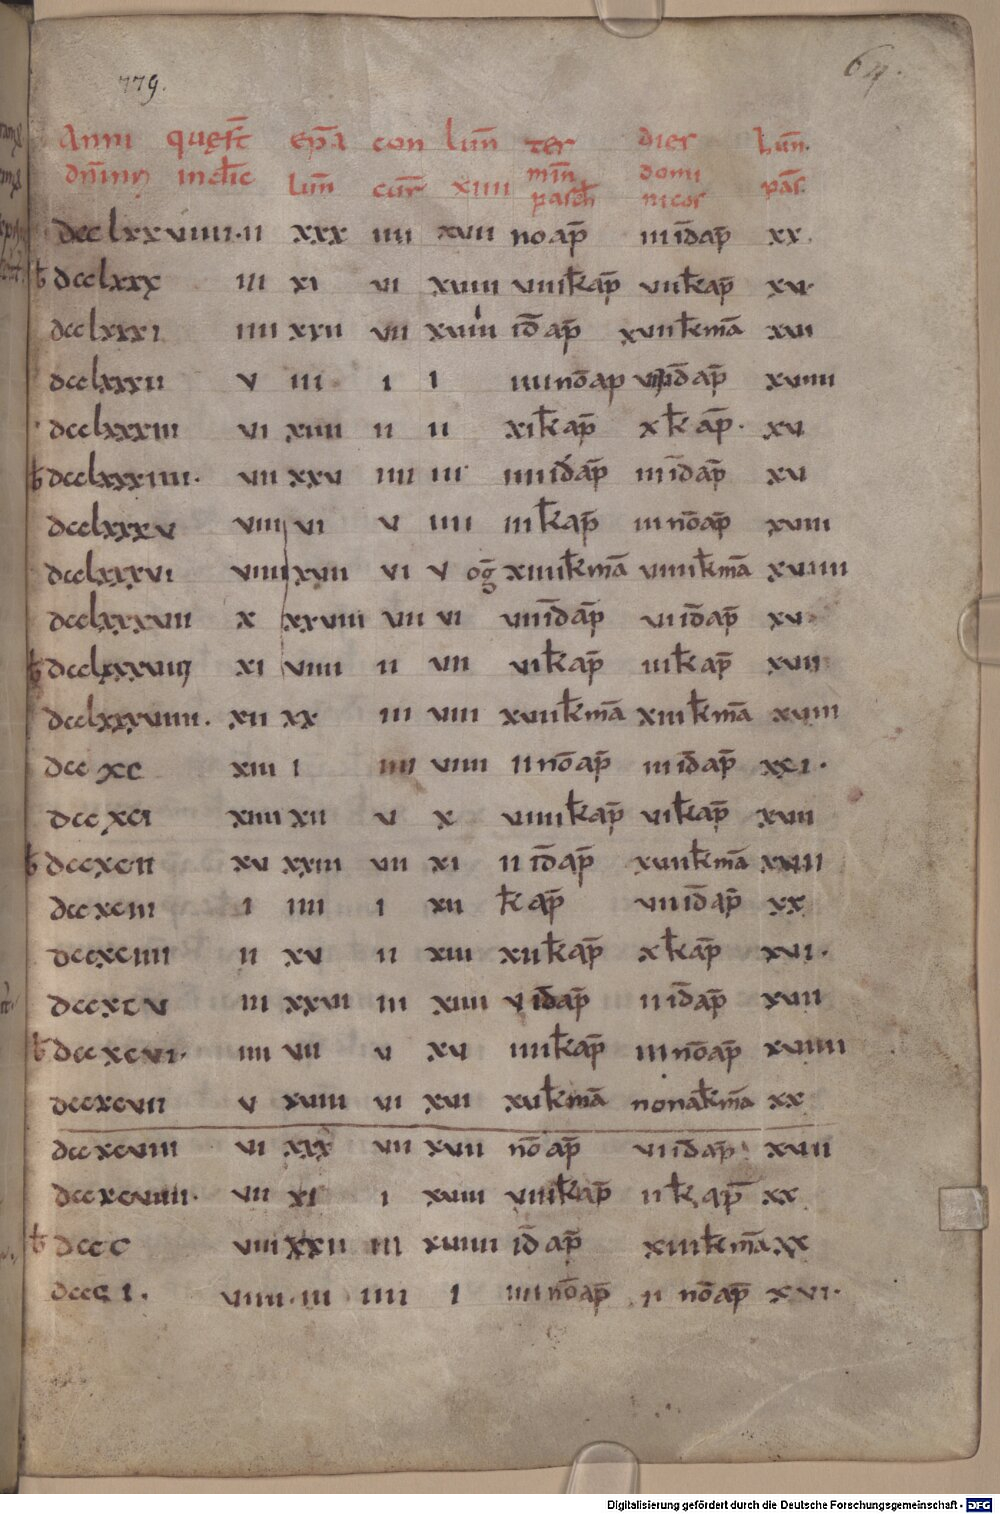 779.
64.
Anni quęst̄ ep̄a con lun̄ ter dier Lun̄.
dn̄iny indic̄ lun̄ cur̄ xiiii min̄ domi pas̄
pasch̄ nicor
dcclxxviiii. ii xxx iiii xvii no ap̄ iii id̄ ap̄ xx.
b̄ dcclxxx iii xi vi xviii viiii k̄ ap̄ vii k̄ ap̄ xvi
dcclxxxi iiii xxii vii xviiii id̄ ap̄ xvii k̄ mā xvii
dcclxxxii v iii i i iiii nō ap id̄ ap̄ xviiii
dcclxxxiii vi xiiii ii ii xi k̄ ap̄ x k̄ ap̄. xv
b̄ dcclxxxiiii. vii xxv iiii iii iiii id ap̄ iii id̄ ap̄ xv
dcclxxxv viii vi v iiii iii k̄ ap̄ iii nō ap̄ xviii
dcclxxxvi viiii xvii vi v og̅ xiiii k̄ mā viiii k̄ mā xviiii
dcclxxxvii x xxviii vii vi vii id̄ ap̄ vi id̄ ap̄ xv
b̄ dcclxxxviii xi viiii ii vii vi k̄ ap̄ iii k̄ ap̄ xvii
dcclxxxviiii. xii xx iii viii xvii k̄ mā xiii k̄ mā xviii
dcc xc xiii i iiii viiii ii nō ap̄ iii id̄ ap̄ xxi.
dcc xci xiiii xii v x viiii k̄ ap̄ vi k̄ ap̄ xvii
b̄ dccxcii xv xxiii vii xi ii id̄ ap̄ xvii k̄ mā xviii
dccxciii i iiii i xii k̄ ap̄ vii id̄ ap̄ xx
dccxciiii ii xv ii xiii xii k̄ ap̄ x k̄ ap̄ xvi.
dccxcv iii xxvi iii xiiii v id̄ ap̄ ii id̄ ap̄ xvii
b̄ dccxcvi. iiii vii v xv iiii k̄ ap̄ iii nō ap̄ xviiii
dccxcvii v xviii vi xvi xv k̄ mā nona k̄ mā xx
dccxcviii vi xxx vii xvii nō ap̄ vi id̄ ap̄ xvii
dccxcviiii. vii xi i xviii viii k̄ ap̄ ii k̄ ap̄ xx
b̄ dccc viii xxii iii xviiii id̄ ap̄ xiii k̄ mā xx
dccci. viiii. iii iiii i iiii nō ap̄ ii nō ap̄ xvi.
Digitalisierung gefördert durch die Deutsche Forschungsgemeinschaft - DFG